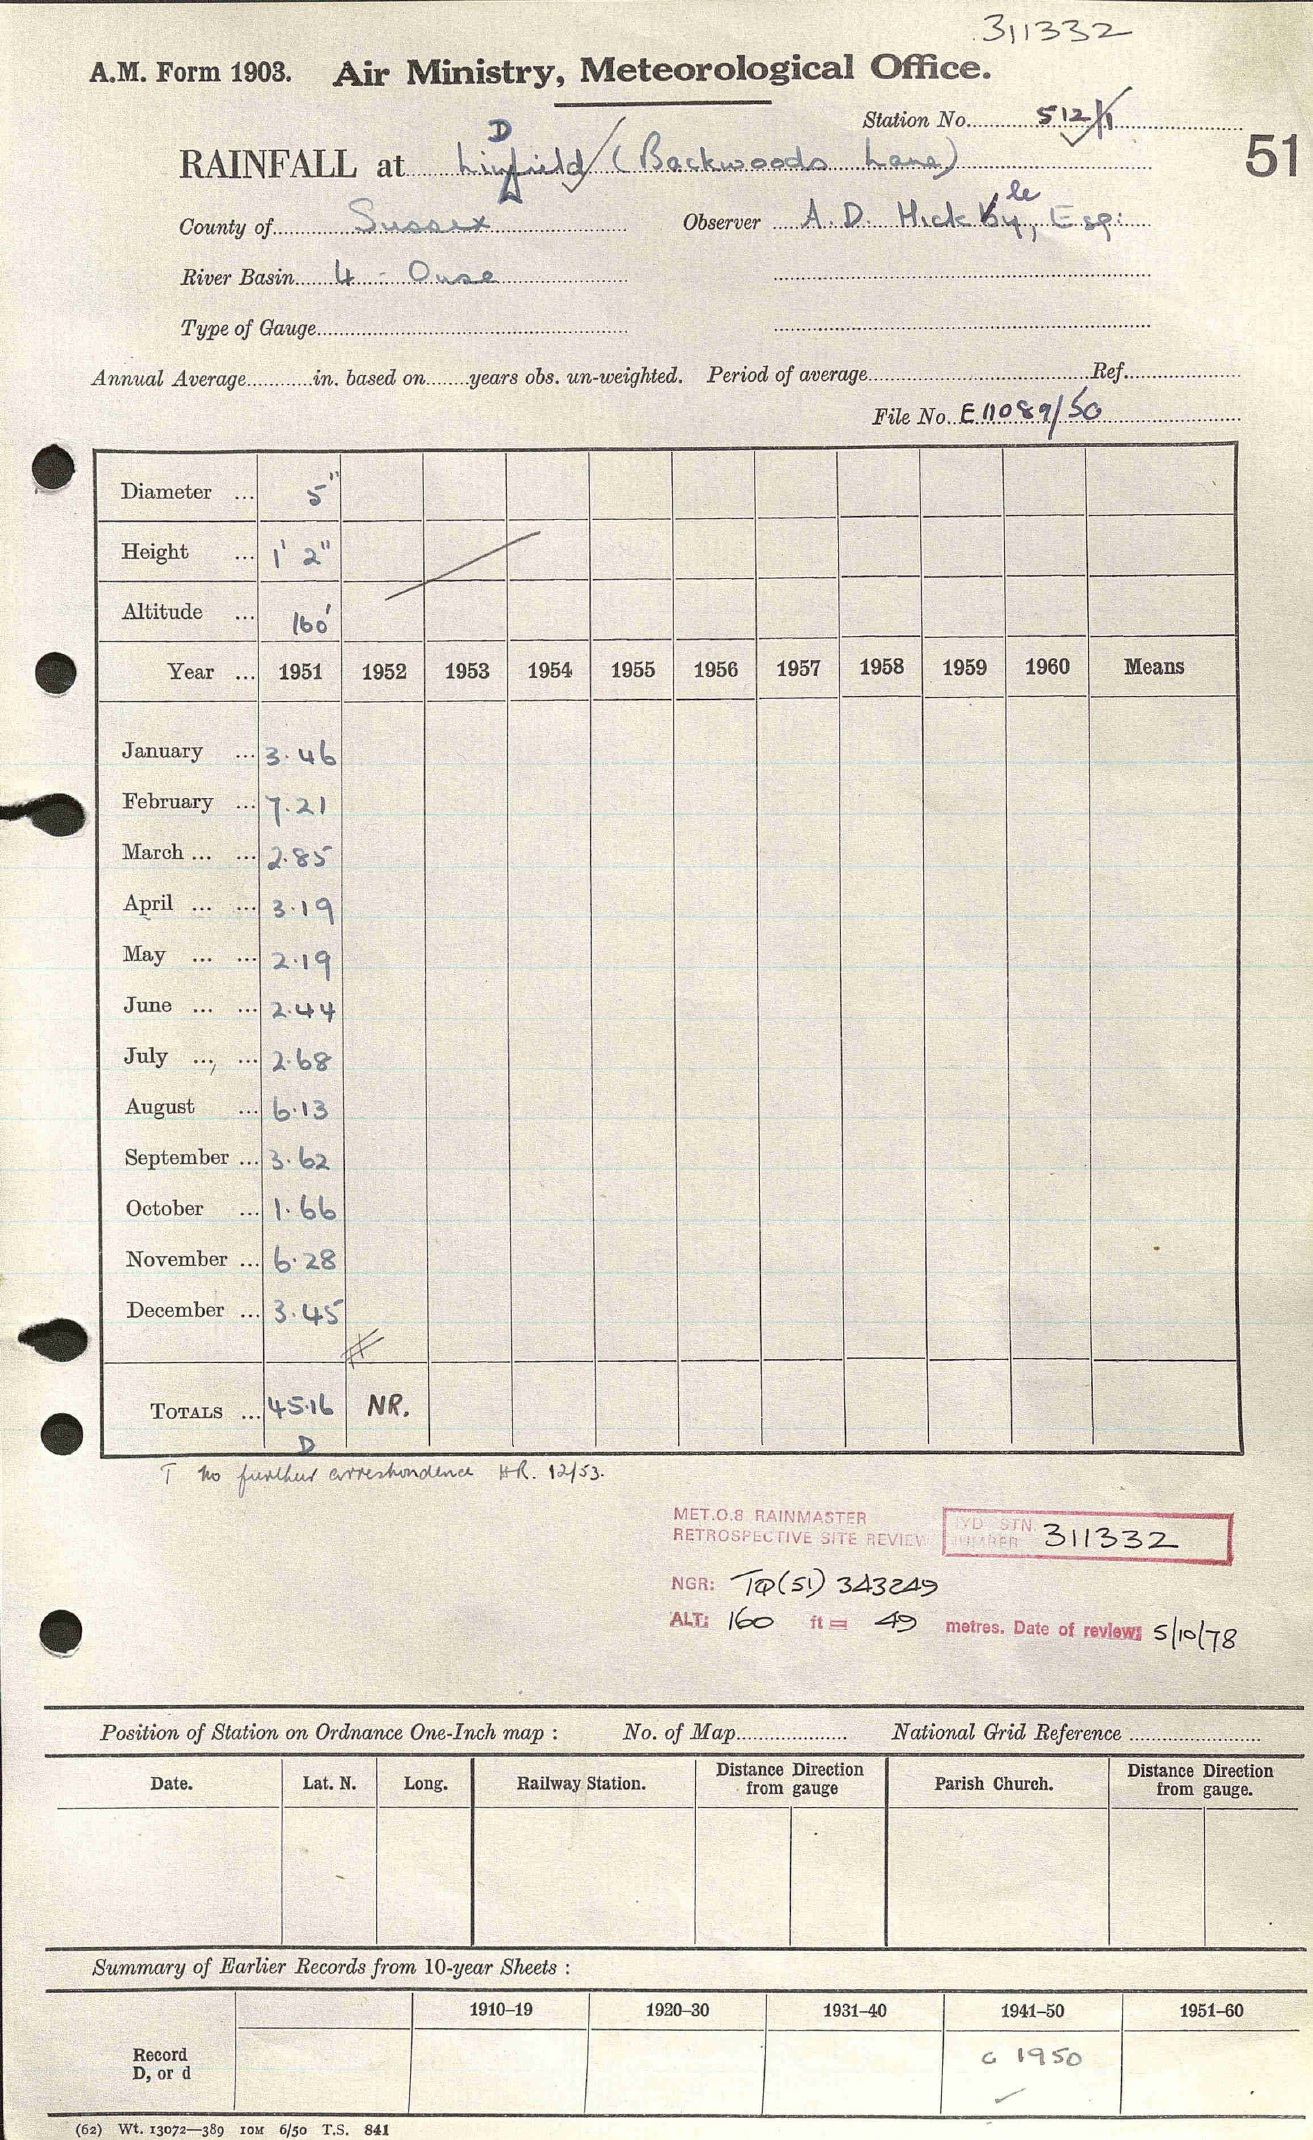 311332
A.M. Form 1903. Air Ministry, Meteorological Office.
Station No. 512/1
51
RAINFALL at Linfield (Backwoods Lane)
D
County of Sussex Observer A. D. Hickby, Esq:
le
River Basin 4 - Ouse
Type of Gauge
Annual Average in. based on years obs. un-weighted. Period of average Ref.
File No. E11089/50
Diameter ... 5"
Height ... 1' 2"
Altitude ... 160'
Year ... 1951 1952 1953 1954 1955 1956 1957 1958 1959 1960 Means
January ... 3.46
February ... 7.21
March ... ... 2.85
April ... ... 3.19
May ... ... 2.19
June ... ... 2.44
July ... ... 2.68
August ... 6.13
September ... 3.62
October ... 1.66
November ... 6.28
December ... 3.45
TOTALS ... 45.16 NR.
D
T no further correspondence HR. 12/53.
MET.O.8 RAINMASTER
RETROSPECTIVE SITE REVIEW
HYD STN. NUMBER 311332
NGR: TQ(51) 343249
ALT: 160 ft = 49 metres. Date of review: 5/10/78
Position of Station on Ordnance One-Inch map : No. of Map National Grid Reference
Date. Lat. N. Long. Railway Station. Distance from Direction gauge Parish Church. Distance from Direction gauge.
Summary of Earlier Records from 10-year Sheets :
1910–19 1920–30 1931–40 1941–50 1951–60
Record D, or d
c 1950
(62) Wt. 13072—389 10M 6/50 T.S. 841